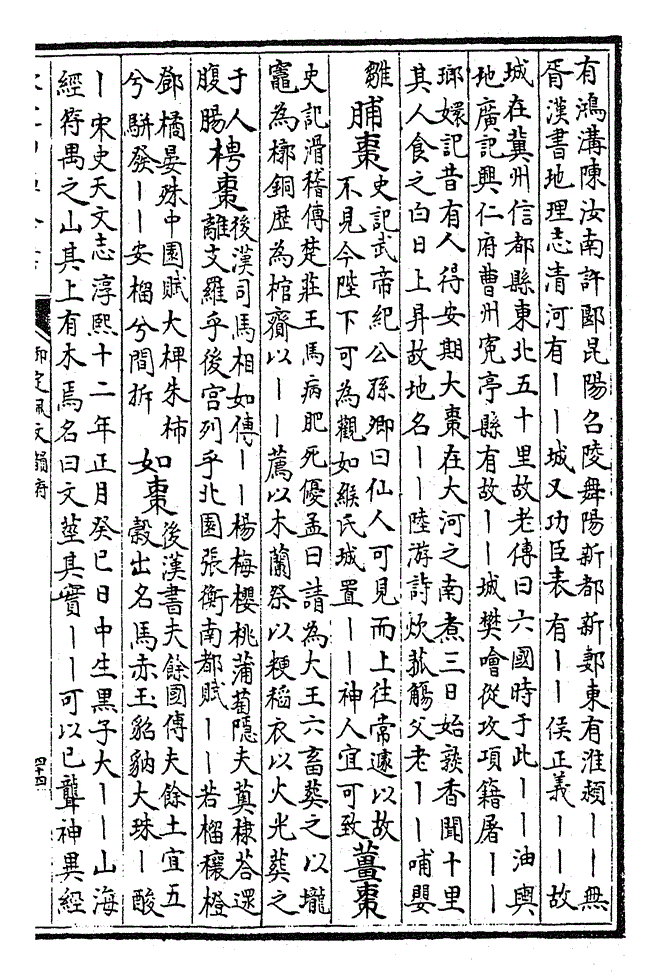 有鴻溝陳汝南許郾昆陽召陵舞陽新都新郪東有淮潁丨丨無
胥漢書地理志清河有丨丨城又功臣表有丨丨侯正義丨丨故
城在冀州信都縣東北五十里故老傳曰六國時于此丨丨油輿
地廣記興仁府曹州寃亭縣有故丨丨城樊噲從攻項籍屠丨丨
瑯嬛記昔有人得安期大棗在大河之南煮三日始熟香聞十里
其人食之白日上昇故地名丨丨陸游詩炊菰觴父老丨丨哺嬰
雛
脯棗
史記武帝紀公孫卿曰仙人可見而上往常遽以故
不見今陛下可為觀如緱氏城置丨丨神人宜可致
薑棗
史記滑稽傳楚莊王馬病肥死優孟曰請為大王六畜葬之以壠
竈為槨銅歷為棺齎以丨丨薦以木蘭祭以粳稻衣以火光葬之
于人
腹腸
梬棗
後漢司馬相如傳丨丨楊梅櫻桃蒲萄隱夫薁棣荅遝
離支羅乎後宮列乎北園張衡南都賦丨丨若榴穰橙
鄧橘晏殊中園賦大椑朱柿
兮駢發丨丨安榴兮間拆
如棗
後漢書夫餘國傳夫餘土宜五
穀出名馬赤玉貂豽大珠丨酸
丨宋史天文志淳熙十二年正月癸巳日中生黑子大丨丨山海
經符禺之山其上有木焉名曰文莖其實丨丨可以已聾神異經
御定佩文韻府
四十四